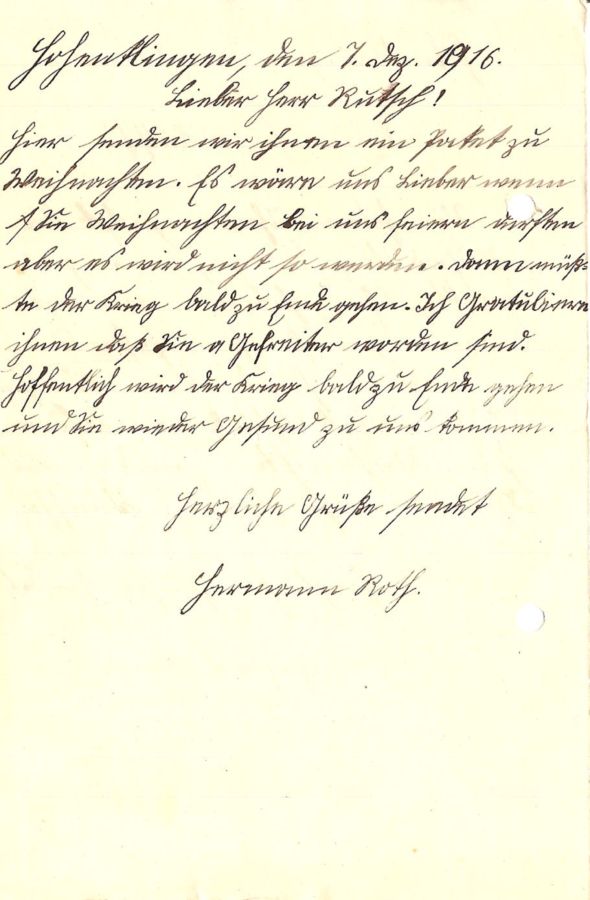 Hohenklingen, den 7. Dez. 1916.
Lieber Herr Rutsch!
Hier senden wir ihnen ein Paket zu
Weihnachten. Es wäre uns Lieber wenn
Sie Weihnachten bei uns feiern dürften
aber es wird nicht so werden. Dann müß-
te der Krieg bald zu Ende gehen. Ich Gratuliere
ihnen daß Sie Gefreiter worden sind.
Hoffentlich wird der Krieg bald zu Ende gehen
und Sie wieder Gesund zu uns kommen.
Herzliche Grüße sendet
Hermann Roth.